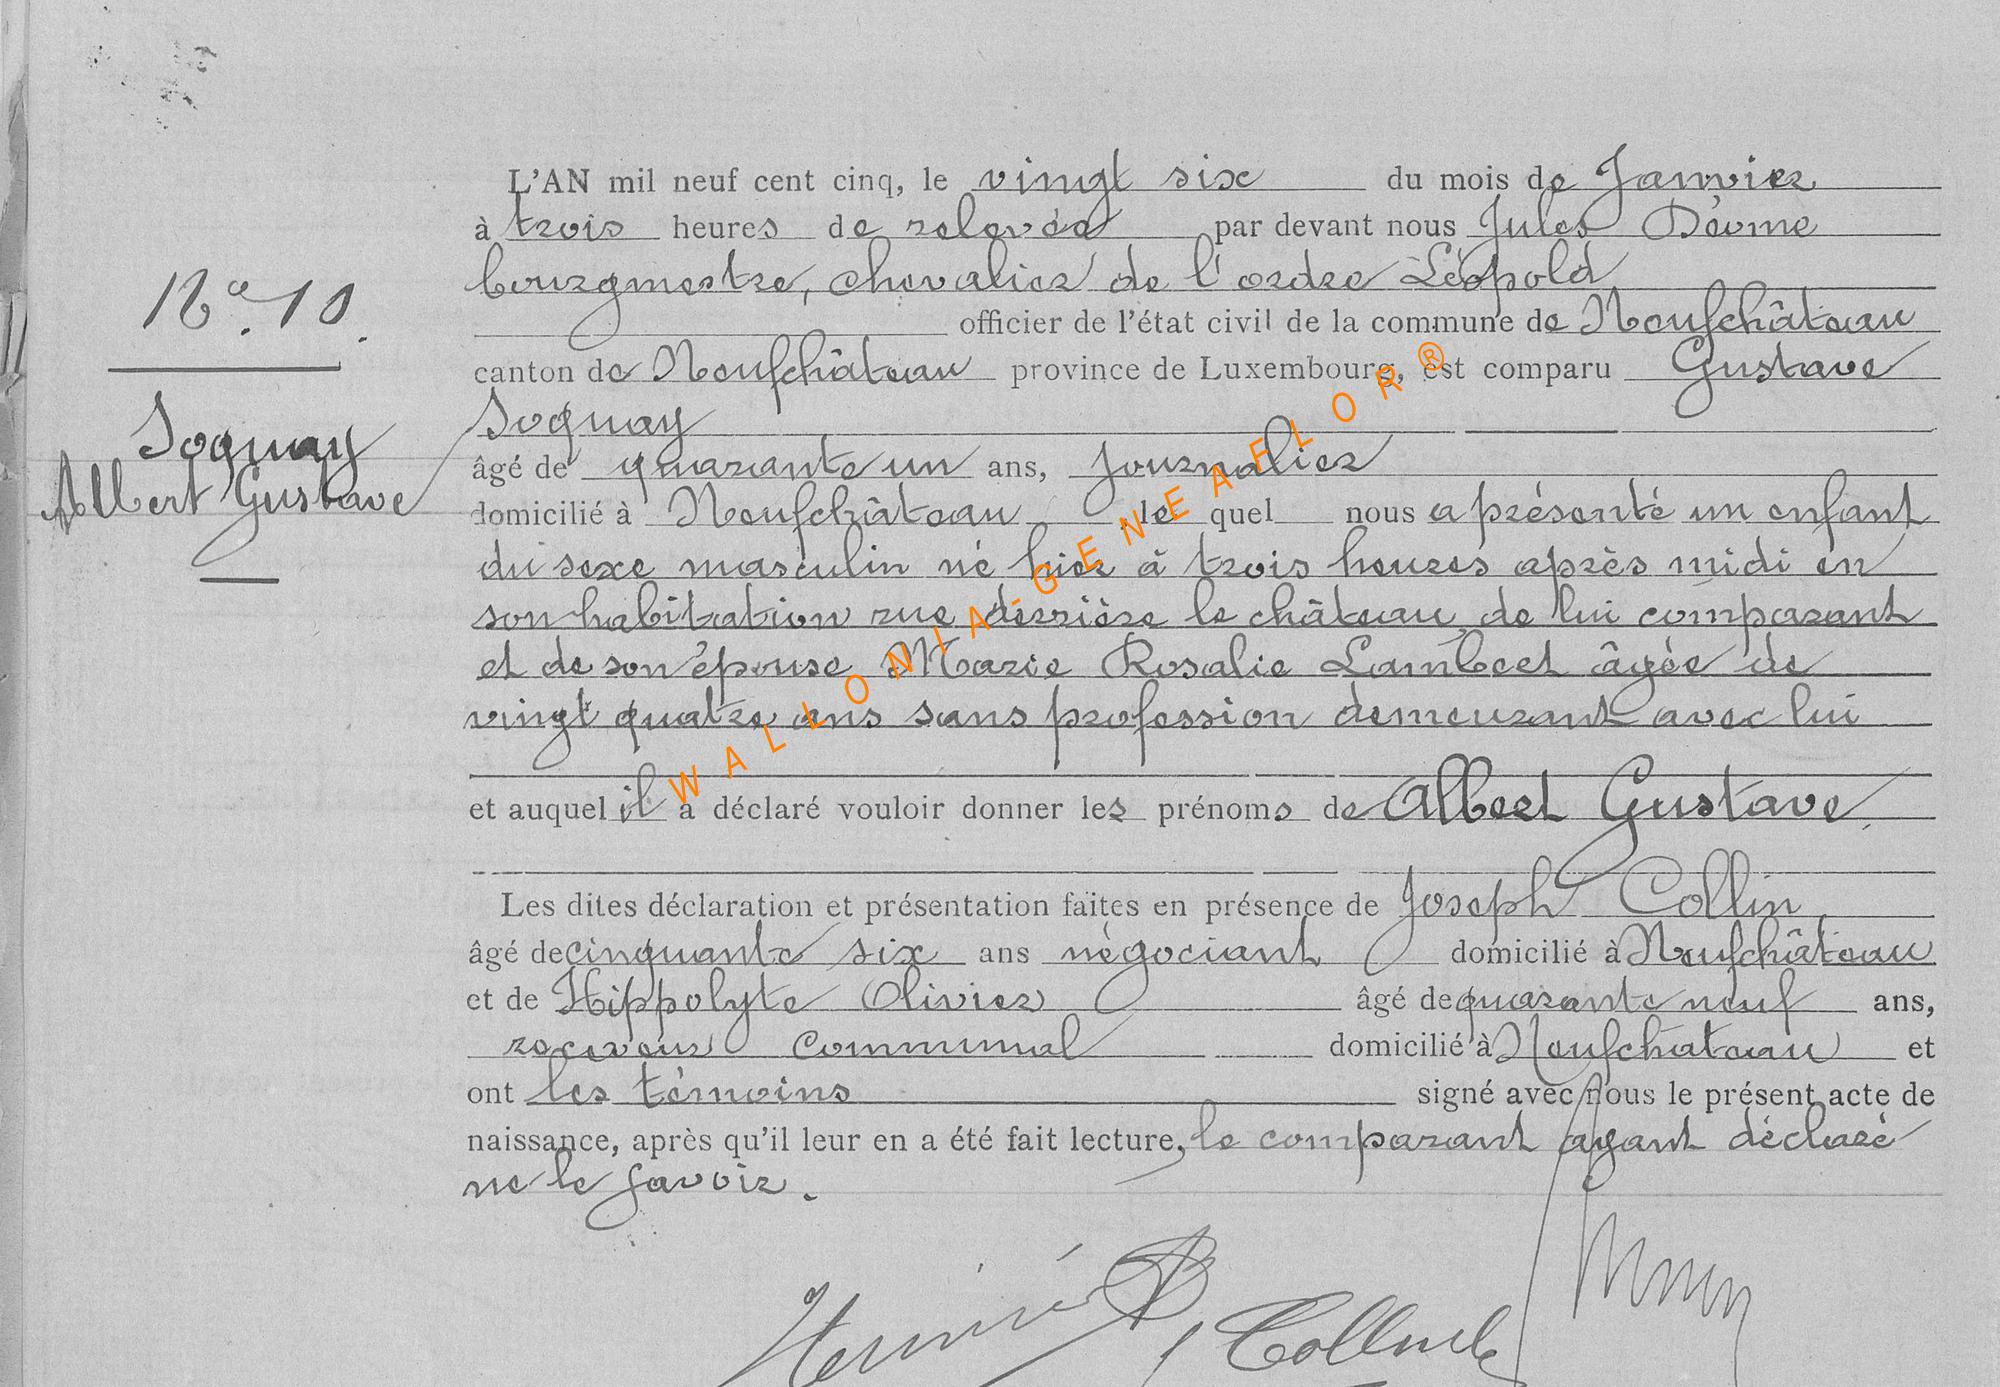 L'AN mil neuf cent cinq, le vingt six du mois de Janvier
à trois heures de relevée par devant nous Jules
bourgmestre, chevalier de l'ordre Léopold
officier de l'état civil de la commune de Neufchâteau
N° 10.
canton de Neufchâteau province de Luxembourg, est comparu Gustave
Soquay
Soquay
Albert Gustave
âgé de quarante un ans, journalier
domicilié à Neufchâteau, le quel nous a présenté un enfant
du sexe masculin né hier à trois heures après midi en
son habitation rue derrière le château, de lui comparant
et de son épouse Marie Rosalie Lambert âgée de
vingt quatre ans sans profession demeurant avec lui
et auquel il a déclaré vouloir donner les prénoms de Albert Gustave.
Les dites déclaration et présentation faites en présence de Joseph Collin
âgé de cinquante six ans négociant domicilié à Neufchâteau
et de Hippolyte Olivier âgé de quarante neuf ans,
receveur communal domicilié à Neufchateau et
ont les témoins signé avec nous le présent acte de
naissance, après qu'il leur en a été fait lecture, le comparant ayant déclaré
ne le savoir.
WALLONIA-GENEAFLOR®